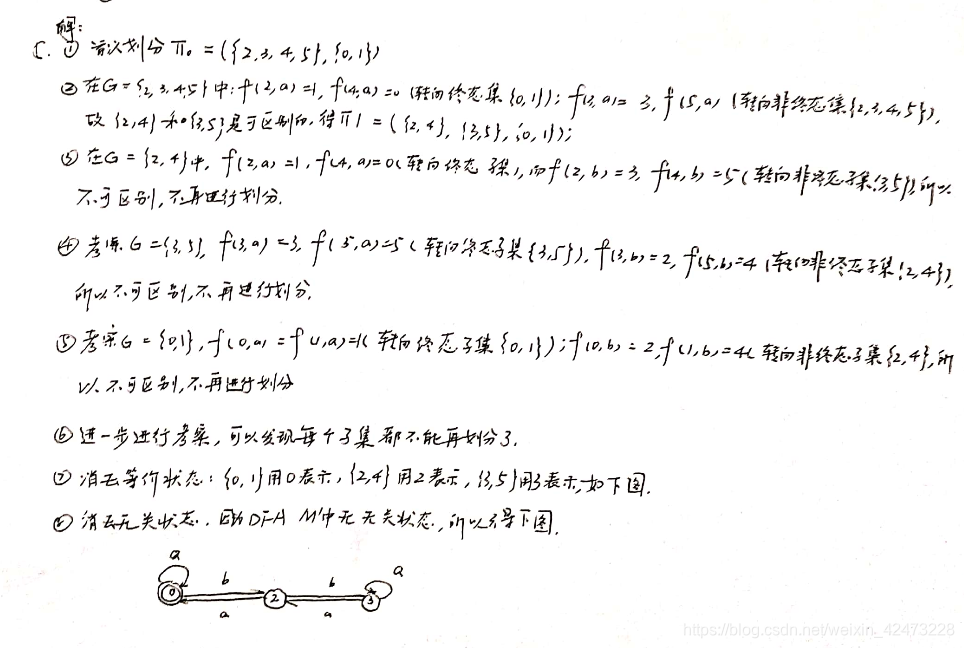 解:
C. ① 首次划分 Π₀ = ({2,3,4,5}, {0,1})
② 在G={2,3,4,5}中: f(2,a)=1, f(4,a)=0 (转向终态集{0,1}); f(3,a)=3, f(5,a) (转向非终态集{2,3,4,5}),
故 {2,4} 和 {3,5} 是可区别的, 得Π1 = ({2,4}, {3,5}, {0,1});
③ 在G={2,4}中, f(2,a)=1, f(4,a)=0(转向终态子集), 而f(2,b)=3, f(4,b)=5(转向非终态子集{3,5}) 所以
不可区别, 不再进行划分.
④ 考察G={3,5}, f(3,a)=3, f(5,a)=5(转向终态子集{3,5}), f(3,b)=2, f(5,b)=4 (转向非终态子集{2,4}),
所以不可区别, 不再进行划分.
⑤ 考察G={0,1}, f(0,a)=f(1,a)=1(转向终态子集{0,1}); f(0,b)=2, f(1,b)=4(转向非终态子集{2,4}, 所
以不可区别, 不再进行划分
⑥ 进一步进行考察, 可以发现每个子集都不能再划分了.
⑦ 消去等价状态: {0,1}用0表示, {2,4}用2表示, {3,5}用3表示, 如下图.
⑧ 消去无关状态. 因为DFA M'中无无关状态, 所以得下图.
a
b
b
a
0
2
3
a
a
https://blog.csdn.net/weixin_42473228